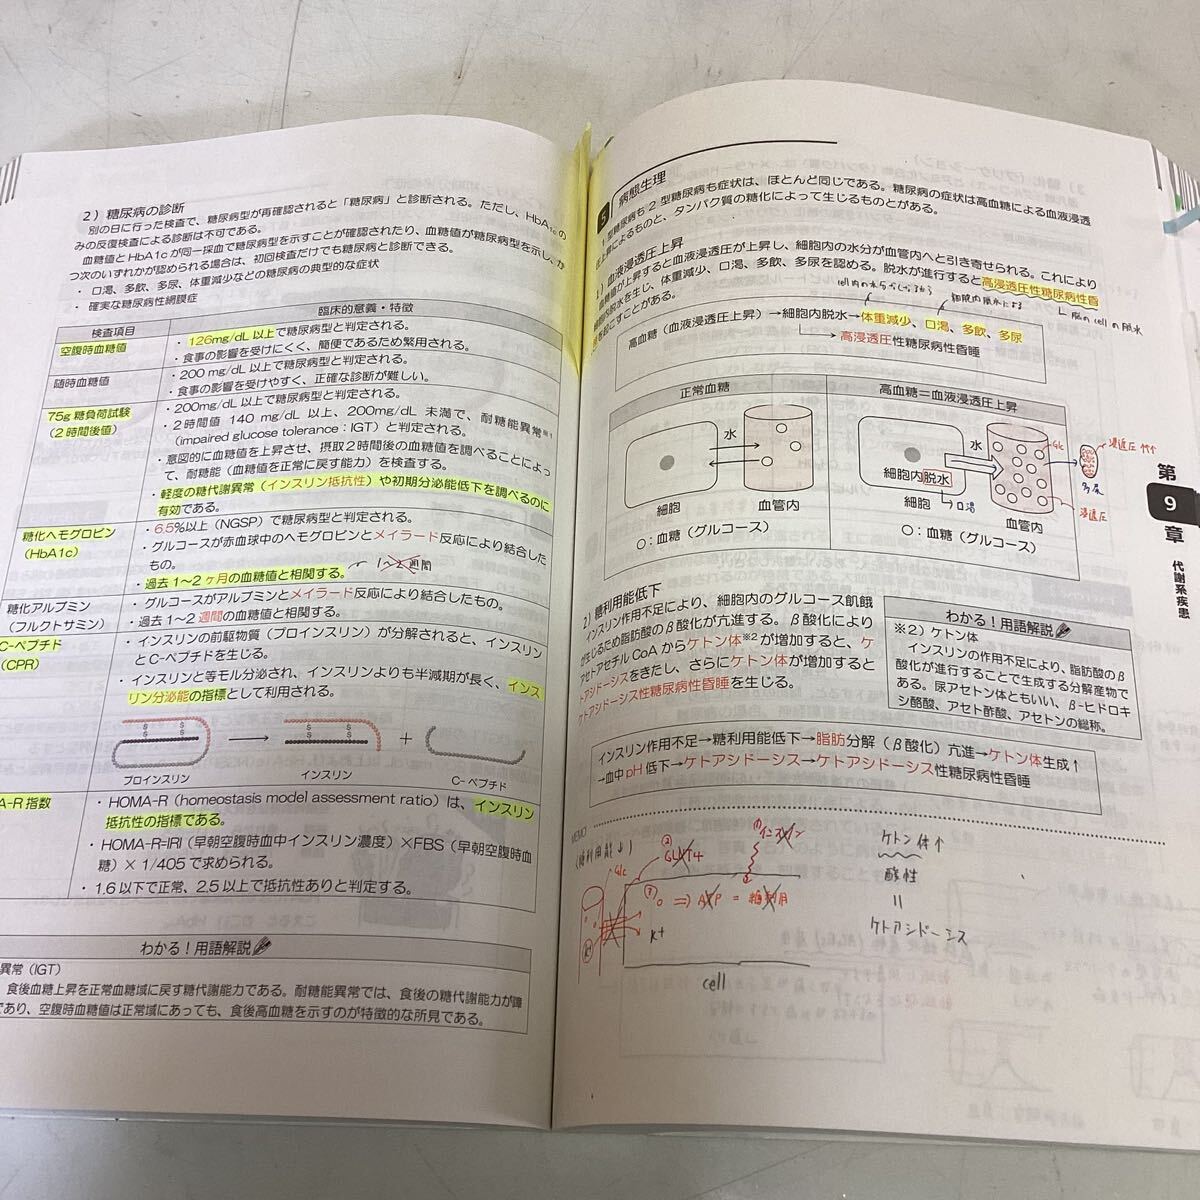 2）糖尿病の診断
別の日に行った検査で、糖尿病型が再確認されると「糖尿病」と診断される。ただし、HbA1cの
みの反復検査による診断は不可である。
血糖値とHbA1cが同一採血で糖尿病型を示すことが確認されたり、血糖値が糖尿病型を示し、か
つ次のいずれかが認められる場合は、初回検査だけでも糖尿病と診断できる。
・口渇、多飲、多尿、体重減少などの糖尿病の典型的な症状
・確実な糖尿病性網膜症
検査項目
臨床的意義・特徴
空腹時血糖値
・126mg/dL以上で糖尿病型と判定される。
・食事の影響を受けにくく、簡便であるため繁用される。
随時血糖値
・200mg/dL以上で糖尿病型と判定される。
・食事の影響を受けやすく、正確な診断が難しい。
75g糖負荷試験
（2時間後値）
・200mg/dL以上で糖尿病型と判定される。
・2時間値 140 mg/dL 以上、200mg/dL 未満で、耐糖能異常※1
（impaired glucose tolerance：IGT）と判定される。
・意図的に血糖値を上昇させ、摂取2時間後の血糖値を調べることによっ
て、耐糖能（血糖値を正常に戻す能力）を検査する。
・軽度の糖代謝異常（インスリン抵抗性）や初期分泌能低下を調べるのに
有効である。
糖化ヘモグロビン
（HbA1c）
・6.5%以上（NGSP）で糖尿病型と判定される。
・グルコースが赤血球中のヘモグロビンとメイラード反応により結合した
もの。
・過去1〜2ヶ月の血糖値と相関する。
1〜2週間
糖化アルブミン
（フルクトサミン）
・グルコースがアルブミンとメイラード反応により結合したもの。
・過去1〜2週間の血糖値と相関する。
C-ペプチド
（CPR）
・インスリンの前駆物質（プロインスリン）が分解されると、インスリン
とC-ペプチドを生じる。
・インスリンと等モル分泌され、インスリンよりも半減期が長く、インス
リン分泌能の指標として利用される。
プロインスリン
インスリン
C-ペプチド
A-R指数
・HOMA-R（homeostasis model assessment ratio）は、インスリン
抵抗性の指標である。
・HOMA-R=IRI（早朝空腹時血中インスリン濃度）×FBS（早朝空腹時血
糖）×1/405で求められる。
・1.6以下で正常、2.5以上で抵抗性ありと判定する。
わかる！用語解説
異常（IGT）
食後血糖上昇を正常血糖域に戻す糖代謝能力である。耐糖能異常では、食後の糖代謝能力が障
であり、空腹時血糖値は正常域にあっても、食後高血糖を示すのが特徴的な所見である。
5 病態生理
1型糖尿病も2型糖尿病も症状は、ほとんど同じである。糖尿病の症状は高血糖による血液浸透
圧上昇によるものと、タンパク質の糖化によって生じるものとがある。
1）血液浸透圧上昇
血糖値が上昇すると血液浸透圧が上昇し、細胞内の水分が血管内へと引き寄せられる。これにより
細胞内脱水を生じ、体重減少、口渇、多飲、多尿を認める。脱水が進行すると高浸透圧性糖尿病性昏
睡を起こすことがある。
細胞内脱水による
高血糖（血液浸透圧上昇）→細胞内脱水→体重減少、口渇、多飲、多尿
→高浸透圧性糖尿病性昏睡
正常血糖
高血糖＝血液浸透圧上昇
水
水
Glc
細胞内脱水
細胞
血管内
細胞
口渇
血管内
多尿
浸透圧
○：血糖（グルコース）
○：血糖（グルコース）
2）糖利用能低下
インスリン作用不足により、細胞内のグルコース飢餓
が生じるため脂肪酸のβ酸化が亢進する。β酸化により
アセトアセチルCoAからケトン体※2が増加すると、ケ
トアシドーシスをきたし、さらにケトン体が増加すると
ケトアシドーシス性糖尿病性昏睡を生じる。
わかる！用語解説
※2）ケトン体
インスリンの作用不足により、脂肪酸のβ
酸化が進行することで生成する分解産物で
ある。尿アセトン体ともいい、β-ヒドロキ
シ酪酸、アセト酢酸、アセトンの総称。
インスリン作用不足→糖利用能低下→脂肪分解（β酸化）亢進→ケトン体生成↑
→血中pH低下→ケトアシドーシス→ケトアシドーシス性糖尿病性昏睡
MEMO
（糖利用能↓）
①インスリン
②
GLUT4
Glc
③
⇒ ATP = 糖利用
K+
K+
cell
ケトン体↑
酸性
=
ケトアシドーシス
第
9
章
代謝系疾患